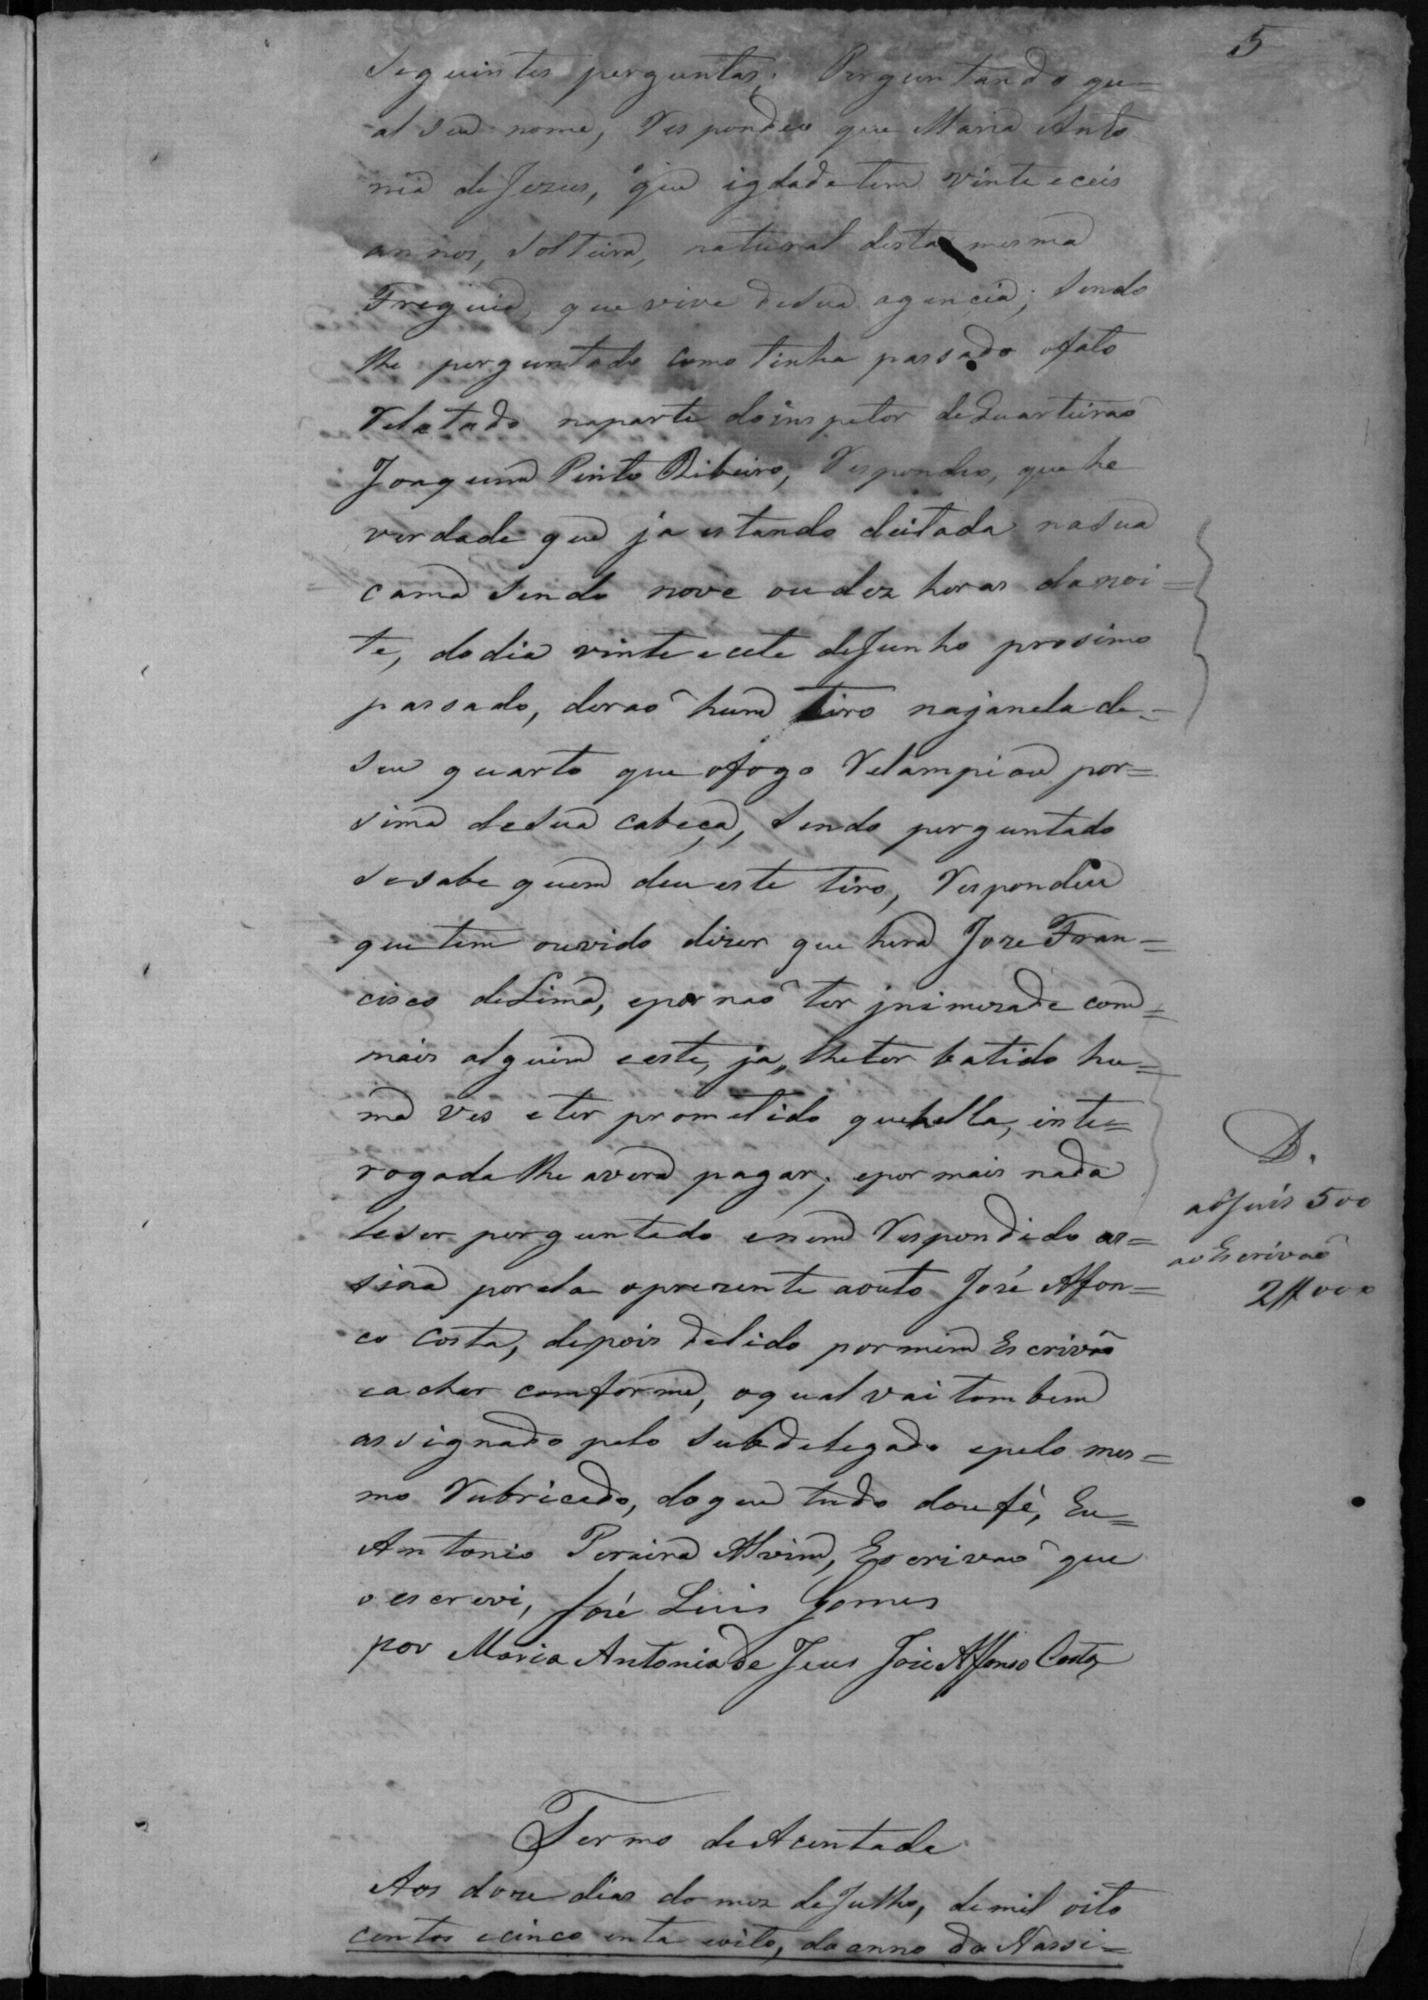 5
Seguintes perguntas; Perguntando qu-
al seu nome, Respondeu que Maria Anto
nia de Jezus, que igdade tem vinte e ceis
annos, Solteira, natural desta mesma
Freguia, que vive de sua agencia; Sendo
lhe perguntado como tinha passado o fato
Relatado na parte do inspetor de Quarteirão
Joaquim Pinto Ribeiro, Respondeo, que he
verdade que ja estando deitada na sua
cama Sendo nove ou dez horas da noi=
te, do dia vinte e cete de Junho prosimo
passado, derao hum tiro na janela de=
Seu quarto que o fogo Relampiou por=
sima de sua cabeça, Sendo perguntado
se sabe quem deu este tiro, Respondeu
que tem ouvido dizer que hera Joze Fran=
cisco de Lima, e por nao ter jnimizade com=
mais alguem e este, ja, lhe ter batido hu=
ma ves e ter prometido que hella, inte=
rogada lhe avera pagar; e por mais nada
leser perguntado e nem Respondido as=
sina por ela o prezente aouto José Affon=
co Costa, depois de lido por mim Escrivão
e achar comforme, o qual vai tambem
assignado pelo Subdelegado e pelo mes=
mo Rubricado, do que tudo dou fé, Eu=
Antonio Pereira Alvim, Escrivao que
o escrevi, José Luis Gomes
por Maria Antonia de Jeus José Affonso Costa
D.
ao Juis 500
ao Escrivão
2#000
Termo de Acentada
Aos doze dias do mez de Julho, de mil oito
centos e cinco enta e oito, do anno do Nassi=